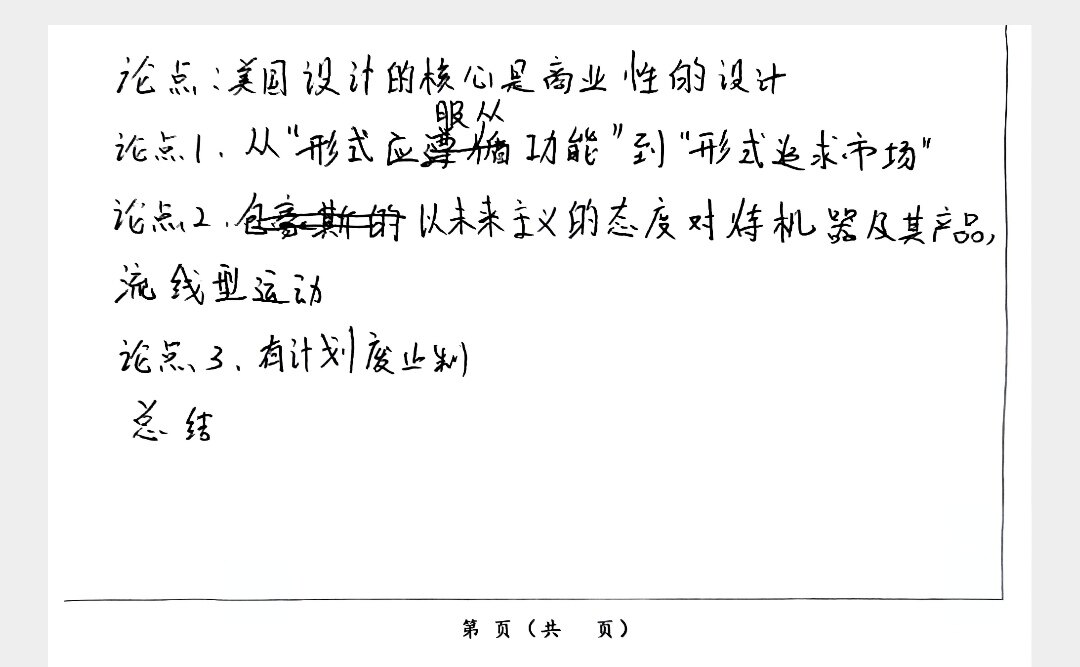 论点:美国设计的核心是商业性的设计
服从
论点1、从“形式应遵循功能”到“形式追求市场”
论点2、包豪斯的以未来主义的态度对待机器及其产品,
流线型运动
论点、3、有计划废止制
总结
第 页(共 页)